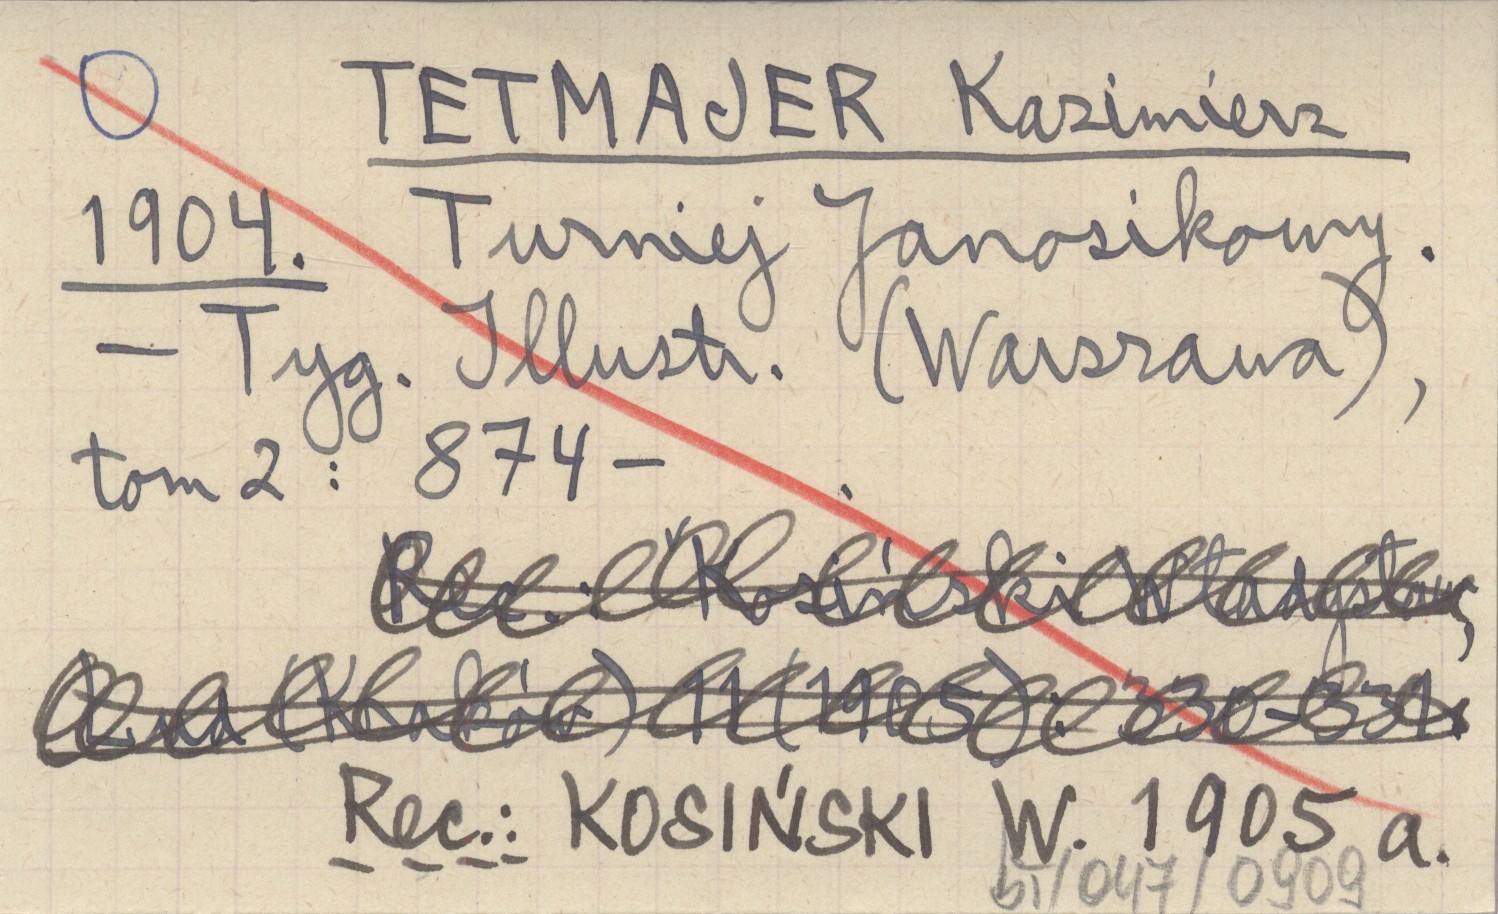 TETMAJER Kazimierz
1904. Turniej Janosikowy.
— Tyg. Illustr. (Warszawa),
tom 2 : 874 —
Rec.: Kosiński Władysław,
Lud (Kraków) 11 (1905): 330-331.
Rec.: KOSIŃSKI W. 1905 a.
bi/047/0909